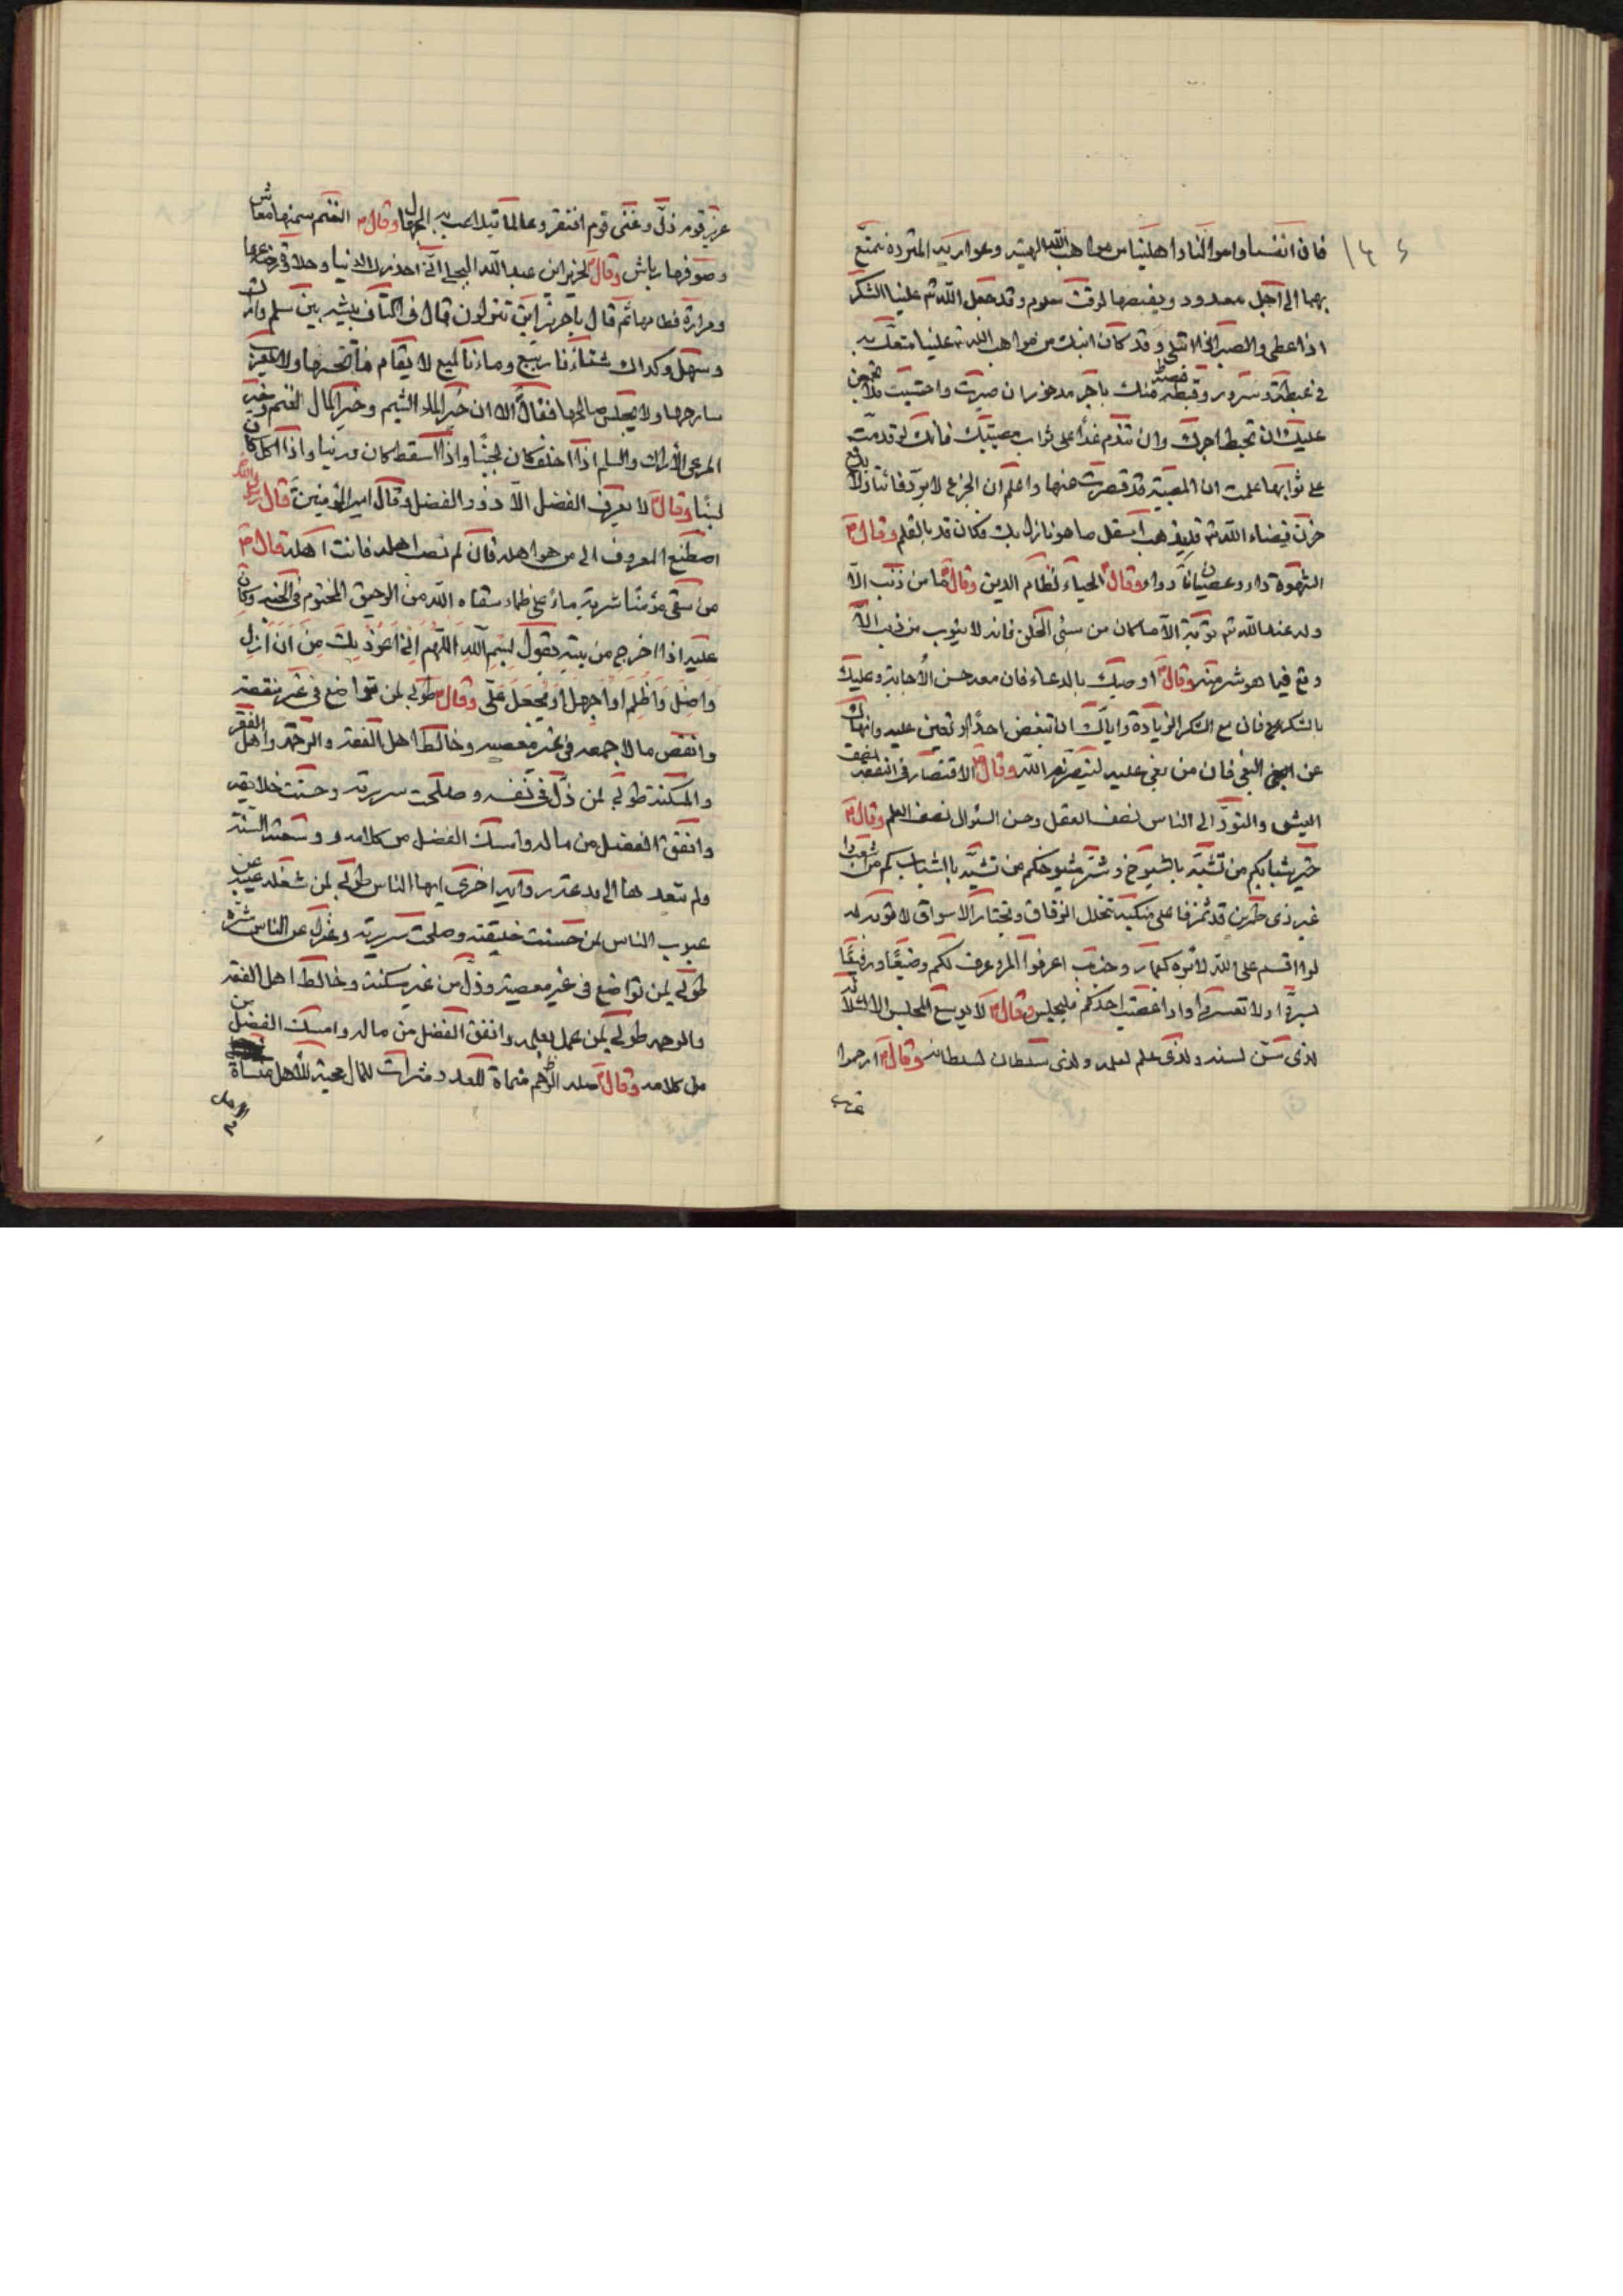 ١٤٤
فان انفسنا واموالنا واهلينا من مواهب الله الهنيئه وعواريه المستردة نمتع
بهما الى اجل معدود ويقبضها لوقت معلوم وقد جعل الله تم علينا الشكر
اذا اعطى والصبر اذا ابتلى وقد كان ابنك من مواهب الله تم علينا متعك به
فى غبطة وسرور وقبضه منك باجر مدخور ان صبرت واحتسبت فلا تجمعن
عليك ان تحبط اجرك وان تندم غداً على ثواب مصيبتك فانك لو قدمت
على ثوابها علمت ان المصيبة قد قصرت عنها واعلم ان الجزع لا يرد فائتا ولا يدفع
حزن قضاء الله تم فليذهب اسفك ما هو نازل بك فكان قد بالقلم وقال ؐ
الشهوة داء وعصيانها دواء وقال ؐ الحياء نظام الدين وقال ؐ ما من ذنب الا
وله عند الله تم توبة الا ما كان من سئ الخلق فانه لا يتوب من ذنب الا
وقع فيما هو شر منه وقال ؐ اوصيك بالدعاء فان معه حسن الاجابة وعليك
بالشكر فان مع الشكر الزيادة واياك ان تبغض احدًا او تعين عليه وانهاك
عن البغى فان من بغى عليه لينصرنه الله وقال ؐ الاقتصار فى النفقه نصف
العيش والتودّد الى الناس نصف العقل وحسن السئوال نصف العلم وقال ؐ
خير شبابكم من تشبّه بالشيوخ وشر شيوخكم من تشبّه بالشباب
غبر ذى طمرين على منكبيه تخلل الزقاق وتجتاز الاسواق لا يؤبه له
لو اقسم على الله لابره كعمار وجندب اعرفوا المرء عرف لكم وضيعًا ورفيعًا
يسروا ولا تعسروا واذا غضب احدكم فليجلس وقال ؐ لا يوسع المجلس الا لثلاثة
لذى سن لسنه ولذى علم لعلمه ولذى سلطان لسلطانه وقال ؐ ارحموا
عزيز
عزيز قوم ذلّ وغنى قوم افتقر وعالما تتلاعب به الجهال وقال ؐ الغنم سمنها معاش
وصوفها رياش وقال ؐ لجرير ابن عبد الله البجلى انى احذرك الدنيا وحلاوة رضاعها
ومرارة فطامها ثم قال يا جرير اين تنزلون قال فى اكناف بيشه بين سلم واراك
وسهل وكداك شتاءنا ربيع وماءنا لا يقام ماتحها ولا يعزب
سارحها ولا يحبس صالحها فقال الا ان خير الماء الشبم وخير المال الغنم وخير
المرعى الاراك والسلم اذا اخلف كان لجينًا واذا اسقط كان درينا واذا اكل كان
لبنًا وقال ؐ لا يعرف الفضل الا ذوو الفضل وقال امير المؤمنين قال رسول الله
اصطنع المعروف الى من هو اهله فان لم تصب اهله فانت اهله قال ؐ
من سقى مؤمنًا شربة ماء على ظماء سقاه الله من الرحيق المختوم فى الجنه وكان
عليه اذا خرج من بيته يقول بسم الله اللهم انى اعوذ بك من ان ازل
واضل واظلم او اجهل او يجهل علىّ وقال ؐ طوبى لمن تواضع فى غير منقصه
وانفق مالا جمعه فى غير معصيه وخالط اهل الفقه والرحمة واهل الفقر
والمسكنة طوبى لمن ذلّ فى نفسه وصلحت سريرته وحسنت خلائقه
وانفق الفضل من ماله وامسك الفضل من كلامه ووسعته السنة
ولم يتعدها الى بدعة روايه اخرى ايها الناس طوبى لمن شغله عيبه عن
عيوب الناس لمن حسنت خليقته وصلحت سريرته وعزل عن الناس شره
طوبى لمن تواضع فى غير معصية وذلّ من غير مسكنة وخالط اهل الفقه
والرحمه طوبى لمن عمل بعلمه وانفق الفضل من ماله وامسك الفضل من
من كلامه وقال ؐ صله الرحم منماة للعدد مثراة للمال محبة للاهل منساة